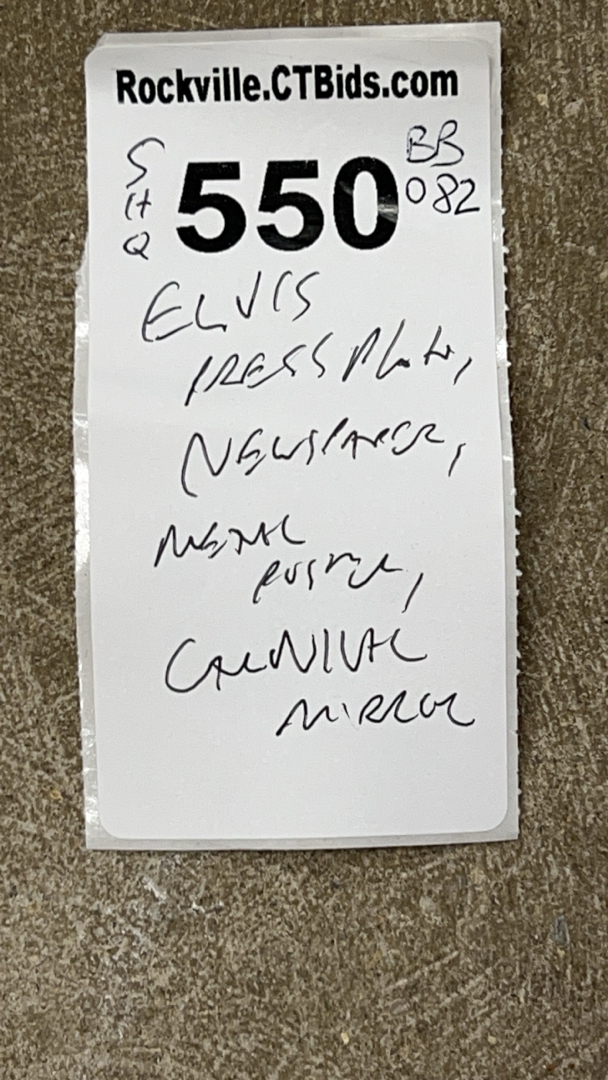 Rockville.CTBids.com
S
H
Q
550
BB
082
ELVIS
PRESS Plate,
NEWSPAPER,
METAL
POSTER,
CARNIVAL
MIRROR